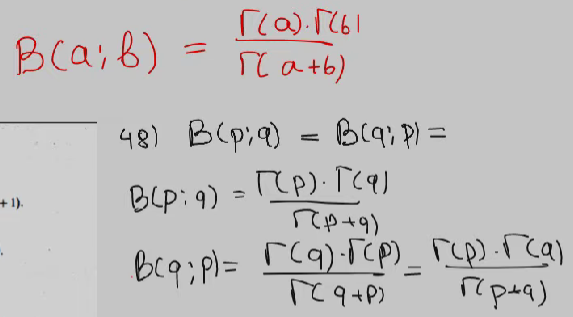 B(a;b) = Γ(a)·Γ(b) / Γ(a+b)
48) B(p;q) = B(q;p) =
B(p;q) = Γ(p)·Γ(q) / Γ(p+q)
+1).
B(q;p) = Γ(q)·Γ(p) / Γ(q+p) = Γ(p)·Γ(q) / Γ(p+q)